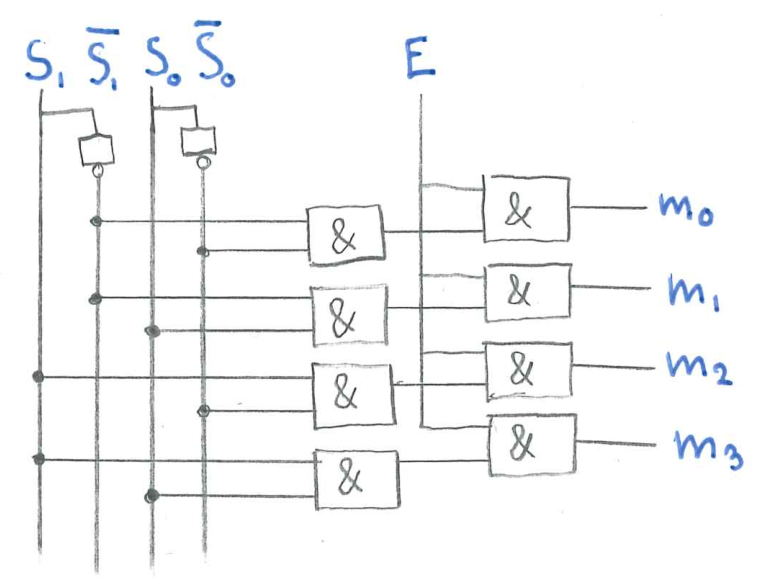 S₁ S̅₁ S₀ S̅₀ E
& & m₀
& & m₁
& & m₂
& & m₃